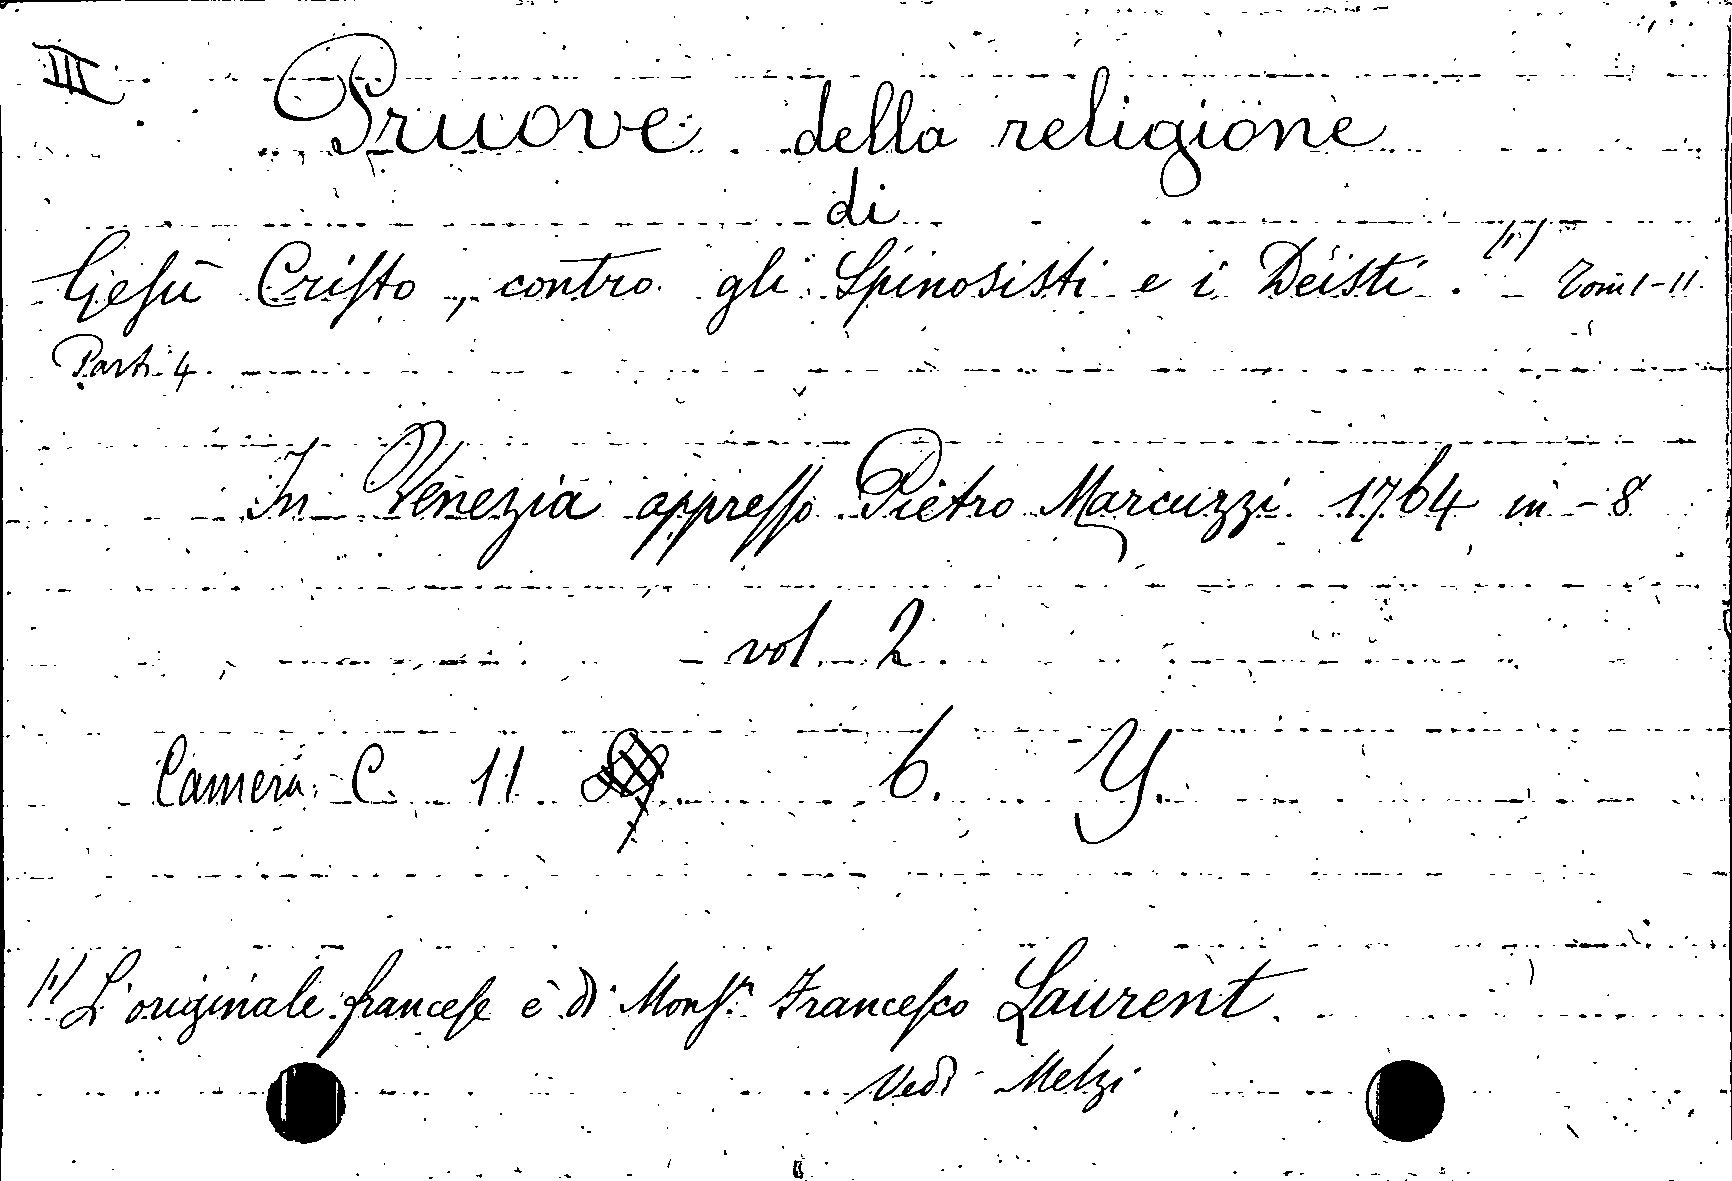 III
Pruove della religione
di
Gesù Cristo, contro gli Spinosisti e i Deisti. (1) Tomi I-II.
Parti 4.
In Venezia appresso Pietro Marcuzzi 1764 in-8
vol. 2
Camera C. 11 6. Y.
(1) L'originale francese è di Monsr. Francesco Laurent.
Vedi Melzi